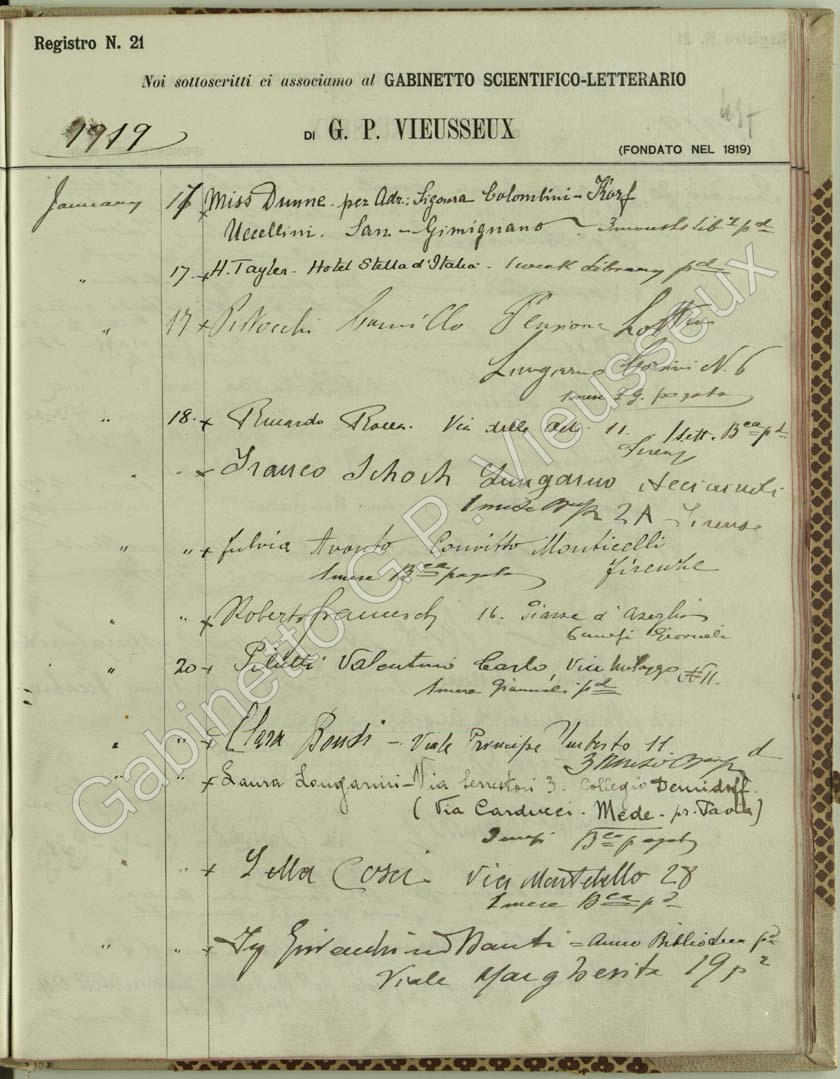 Registro N. 21
Noi sottoscritti ci associamo al GABINETTO SCIENTIFICO-LETTERARIO
1919 DI G. P. VIEUSSEUX
(FONDATO NEL 1819)
January 17 Miss Dunne per Adr: Signora Colombini - Korf
Uccellini. San - Gimignano 3 months Lib.y pd
" 17 H. Tayler - Hotel Stella d'Italia - 1 week Library pd
" 17 Camillo Pensione
Lungarno N. 6
1 mese pagato
" 18 Riccardo Rocca Via delle 11. 1 Sett. Bca pd
Firenze
" " Franco Schoch Lungarno Acciaiuoli
1 mese 2A Firenze
" " Fulvia Avonto Convitto Monticelli
1 mese Bca pagato Firenze
" Roberto Franceschi 16. Piazza d'Azeglio
6 mesi Giornali
" 20 Pilutti Valentino Carlo, Via Milazzo N 11.
1 mese Giornali pd
" " Clara Bondi - Viale Principe Umberto 11
3 mesi pd
" " Laura Longarini - Via Serristori 3. Collegio Demidoff.
(Via Carducci - Mede - pr. Pavia)
3 mesi Bca pagato
" " Lella Via Montebello 28
1 mese Bca pd
" " Ing Gioacchino = Anno Biblioteca pd
Viale Margherita 19
Gabinetto G. P. Vieusseux